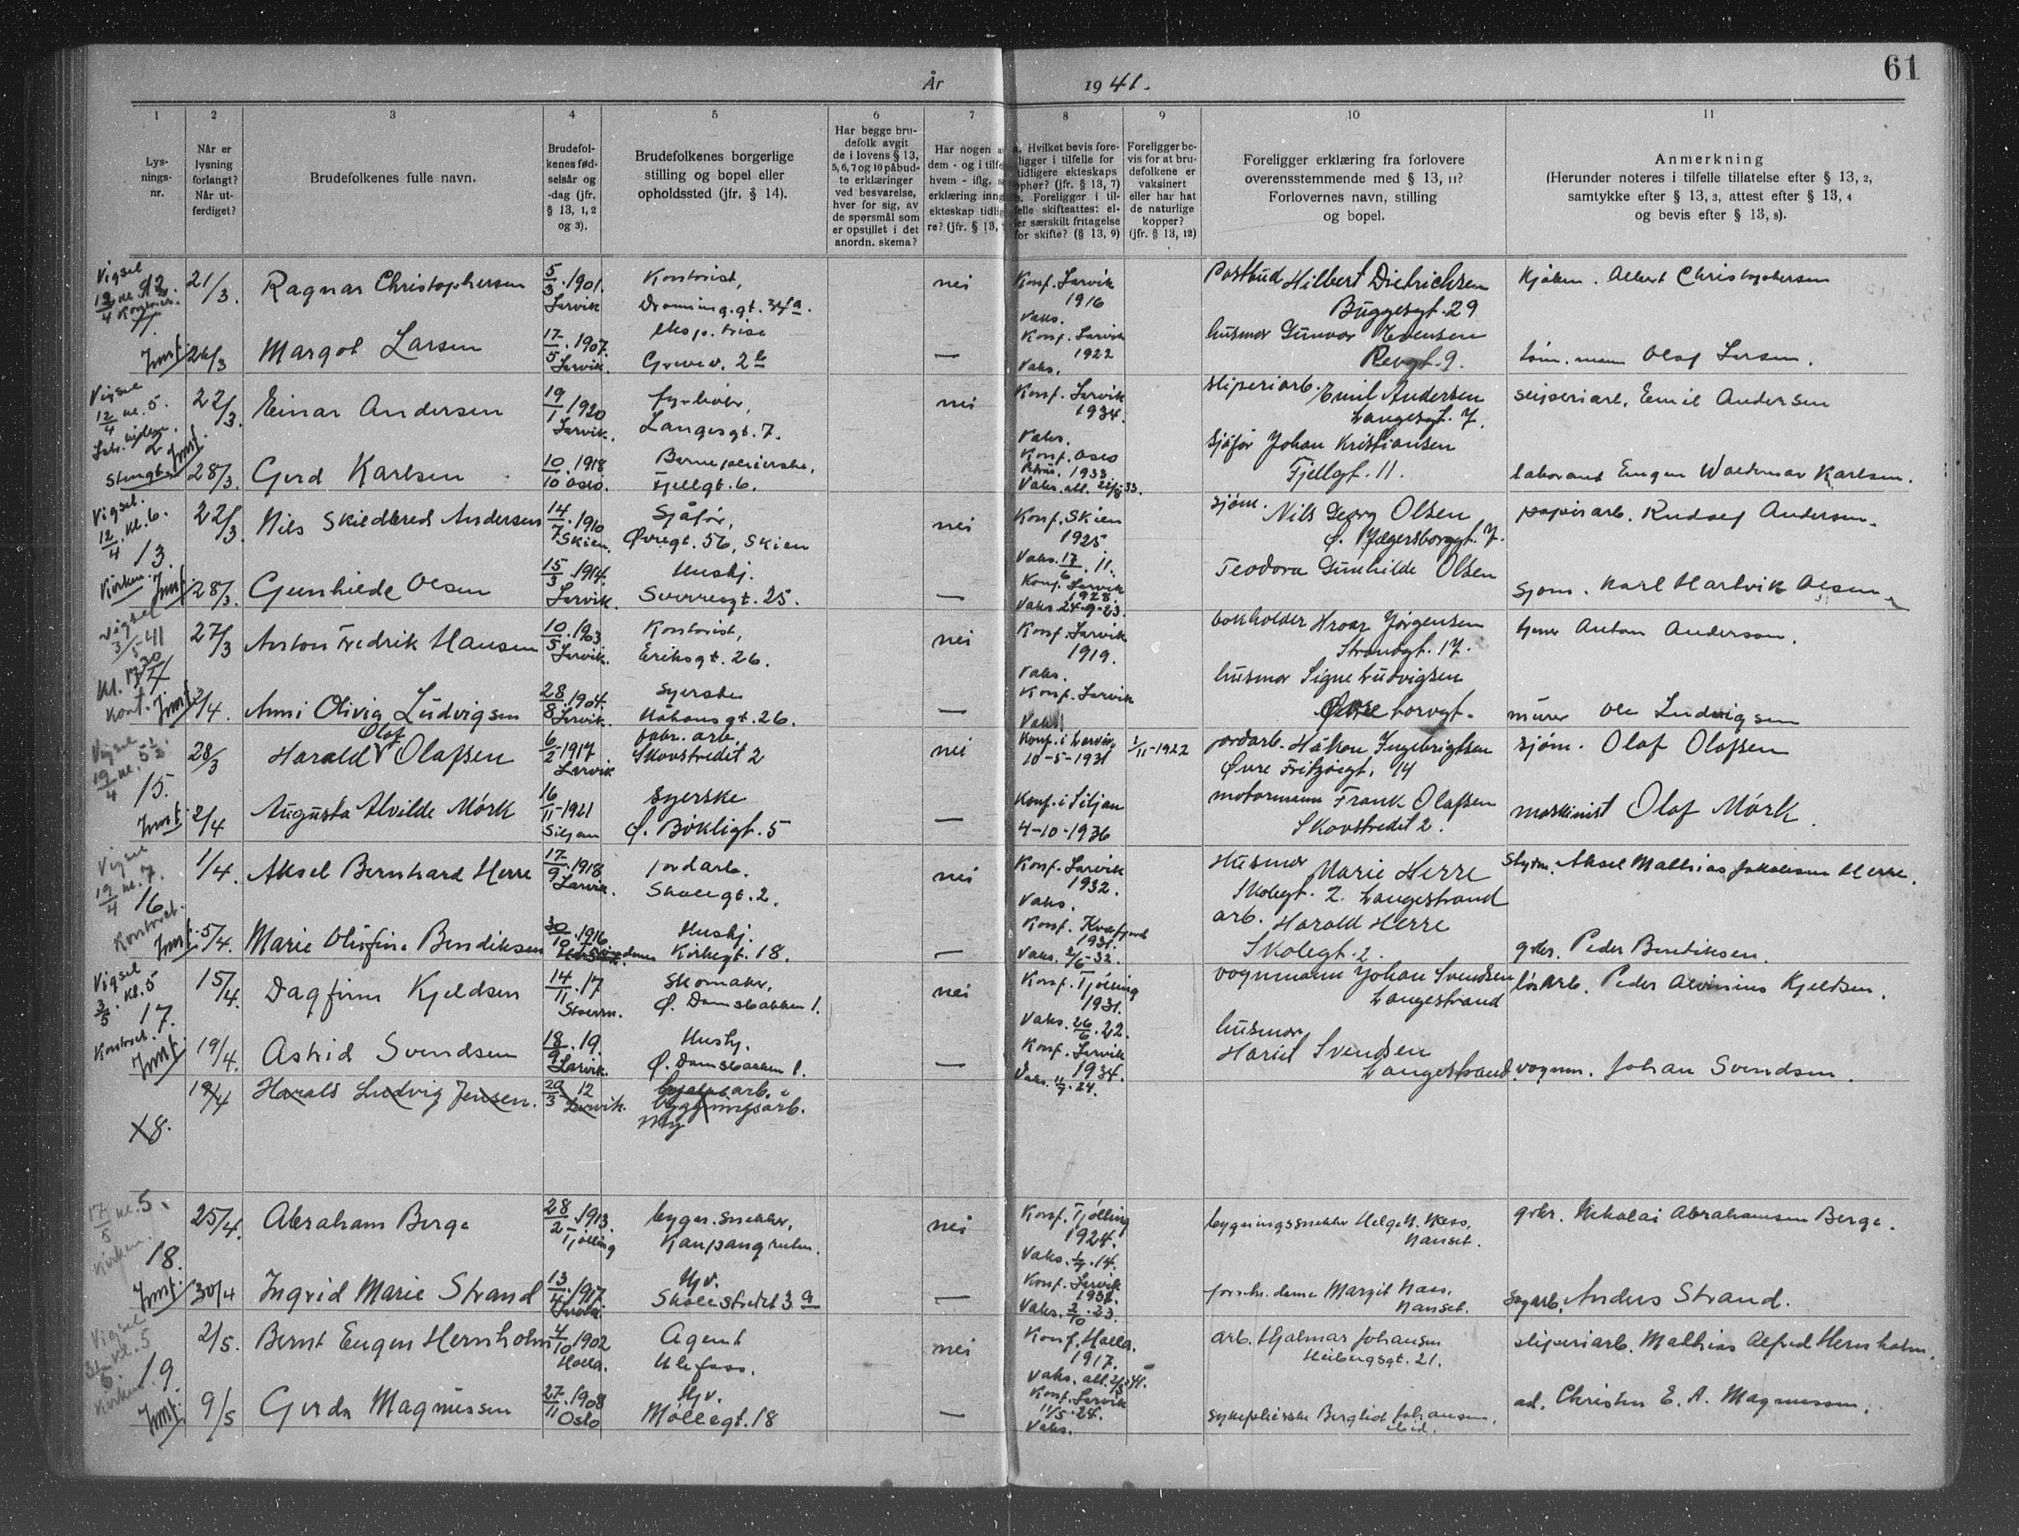 61
År 1941.
1 2 3 4 5 6 7 8 9 10 11
Lys-
nings-
nr.
Når er
lysning
forlangt?
Når ut-
ferdiget?
Brudefolkenes fulle navn.
Brudefol-
kenes fød-
selsår og
-dag (jfr.
§ 13, 1, 2
og 3).
Brudefolkenes borgerlige
stilling og bopel eller
opholdssted (jfr. § 14).
Har begge bru-
defolk avgit
de i lovens § 13,
5, 6, 7 og 10 påbud-
te erklæringer
ved besvarelse,
hver for sig, av
de spørsmål som
er opstillet i det
anordn. skema?
Har nogen a
dem - og i tilfe
hvem - iflg. s
erklæring inng
ekteskap tidlig
re? (jfr. § 13,
a. Hvilket bevis fore-
ligger i tilfelle for
tidligere ekteskaps
ophør? (jfr. § 13, 7)
b. Foreligger i til-
felle skifteattest el-
ler særskilt fritagelse
for skifte? (§ 13, 9)
Foreligger be-
vis for at bru-
defolkene er
vaksinert
eller har hat
de naturlige
kopper?
(jfr. § 13, 12)
Foreligger erklæring fra forlovere
overensstemmende med § 13, 11?
Forlovernes navn, stilling
og bopel.
Anmerkning
(Herunder noteres i tilfelle tillatelse efter § 13, 2,
samtykke efter § 13, 3, attest efter § 13, 4
og bevis efter § 13, 8).
Vigsel 12/4
21/3. Ragnar Christophersen 5/3.1901. Larvik Kontorist, nei Konf. Larvik 1916 Vaks. Postbud Hilbert Dietrichsen Buggesgt. 29 Albert Christophersen
11.
26/3 Margot Larsen 17/5.1907. Larvik. Greve v. 2 b — Konf. Larvik 1922 Vaks. husmor Gunvor Evensen 9. Olaf Larsen.
Vigsel 12/4 kl. 5.
22/3. Einar Andersen 19/1 1920 Larvik. Langesgt. 7. nei Konf. Larvik 1934. Vaks. sliperiarb. Emil Andersen Langesgt. 7. sliperiarb. Emil Andersen
28/3. Gerd Karlsen 10/10.1918 Oslo. Barnepleierske, Fjellgt. 6. Konf. Oslo 1933 sjåfør Johan Kristiansen Fjellgt. 11. laborant Eugen Waldemar Karlsen.
Vigsel 12/4 kl. 6.
22/3. Nils Skildbred Andersen 14/7.1910 Skien. Sjåfør, Øvregt. 56, Skien nei Konf. Skien 1925. Vaks. 17/6.11. sjøm. Nils Georg Olsen Ø. Jegersborggt. 7. papirarb. Rudolf Andersen.
13.
Kirken.
28/3. Gunhilde Olsen 15/3.1914. Larvik. Hushj. Sverresgt. 25. — Konf. Larvik 1928. Vaks. 24-9-23. Teodora Gunhilde Olsen sjøm. Karl Hartvik Olsen
Vigsel 3/5-41
27/3 Anton Fredrik Hansen 10/5.1903 Larvik. Kontorist, Eriksgt. 26. nei Konf. Larvik 1919. Vaks. bokholder Hroar Jørgensen Strandgt. 17. Anton Anderson.
14
Kont.
2/4. Anni Olivia Ludvigsen 28/8.1904. Larvik. Syerske Håkonsgt. 26. — Konf. Larvik Vaks. husmor Signe Ludvigsen Øvre Torvgt. murer Ole Ludvigsen
Vigsel 19/4
28/3 Harald Olaf Olafsen 6/2-1917 Larvik fabr. arb. Skovstredet 2 nei Konf. i Larvik, 10-5-1931 1/11-1922 jordarb. Håkon Ingebrigtsen Øvre Fritzøegt. 14 sjøm. Olaf Olafsen
15.
2/4 Augusta Alvilde Mørk 16/11-1921 Siljan Syerske Ø. Bøkligt. 5 — Konf. i Siljan 4-10-1936 motormann Frank Olafsen Skovstredet 2. maskinist Olaf Mørk.
Vigsel 19/4 kl. 7.
1/4. Aksel Bernhard Herre 17/9.1918 Larvik. jordarb. Skolegt. 2. nei Konf. Larvik 1932. Vaks. Husmor Marie Herre Skolegt. 2. Langestrand Aksel Mathias Jakobsen Herre.
16.
Kontoret.
5/4. Marie Olufine Bendiksen 1916 Hushj. Kirkegt. 18. — Konf. Kvæfjord 1931. Vaks. 2/6-32. arb. Harald Herre Skolegt. 2. grbr. Peder Bendiksen.
Vigsel 3/5. kl. 5
15/4. Dagfinn Kjeldsen 14/11.17 Skomaker, Ø. Damsbakken 1. nei Konf. Tjølling 1931. Vaks. 26/6.22. vognmann Johan Svendsen Langestrand løsarb. Peder Kjeldsen.
17.
Kontoret.
19/4. Astrid Svendsen 18/9.19. Larvik. Hushj. Ø. Damsbakken 1. — Konf. Larvik 1934. husmor Svendsen Langestrand vognm. Johan Svendsen.
19/4 Harald Ludvig Jensen. 29/3 12 Larvik. bygningsarb.
18.
17/5 kl. 5.
25/4. Abraham Berge 28/2-1913. Tjølling bygn. snekker, nei Konf. Tjølling 1924. bygningssnekker Helge N. Næss, Nanset. grbr. Nikolai Abrahamsen Berge.
Kirken.
18.
30/4 Ingrid Marie Strand 13/4.1917 Hjv. Skolestredet 3 a — Konf. Larvik Vaks. 2/10.23. Margit Næss, Nanset. Anders Strand.
Vigsel kl. 5
2/5. Bernt Eugen Hernholm 4/10 1902 Holla. Agent Ulefoss. nei Konf. Holla. 1917. arb. Hjalmar Johansen Heibergsgt. 21. sliperiarb. Mathias Alfred Hernholm.
19.
Kirken.
9/5 Gerda Magnussen 27/11.1908 Oslo Hjv. Møllegt. 18 — Konf. Larvik 11/5.24. Vaks. sykepleierske Bergliot Johansen, ibid. Christen E. A. Magnussen.